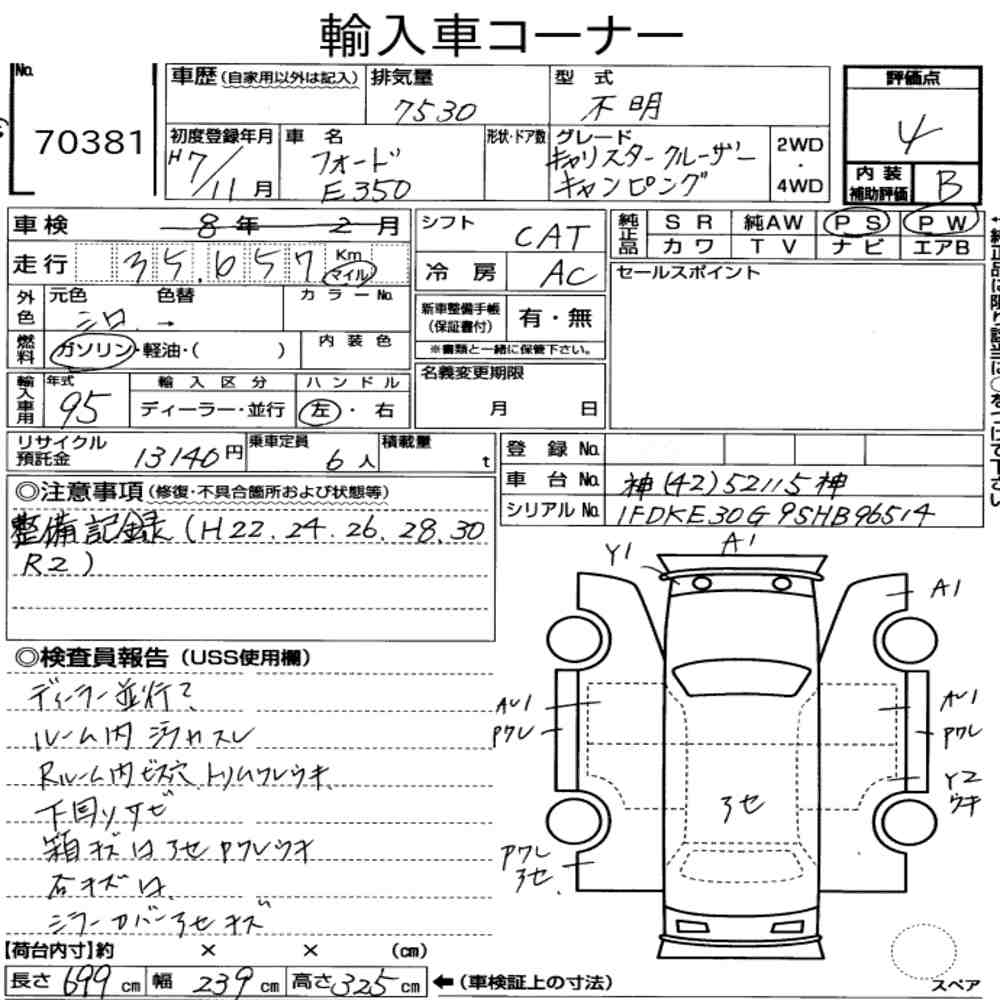 輸入車コーナー
No.
70381
車歴 (自家用以外は記入)
排気量
7530
型式
不明
評価点
4
内装
補助評価
B
初度登録年月
H7/11月
車名
フォード
E350
形状・ドア数
グレード
キャリスタークルーザー
キャンピング
2WD
・
4WD
車検 8年 2月
走行 35,657 Km
マイル
外色 元色 色替 カラーNo.
シロ →
燃料 ガソリン・軽油・( ) 内装色
輸入車用 年式 輸入区分 ハンドル
95 ディーラー・並行 左・右
シフト CAT
冷房 AC
新車整備手帳
(保証書付) 有・無
※書類と一緒に保管下さい。
名義変更期限
月 日
純正品 SR 純AW PS PW
カワ TV ナビ エアB
セールスポイント
リサイクル
預託金 13140円
乗車定員 6人
積載量 t
登録No.
車台No. 神(42)52115神
シリアルNo. 1FDKE30G9SHB96514
◎注意事項 (修復・不具合箇所および状態等)
整備記録(H22.24.26.28.30
R2)
◎検査員報告 (USS使用欄)
ディーラー並行?
ルーム内シミヤカスレ
Rルーム内ビス穴 トリムワレウキ
下回リサビ
箱キズ凹アセPワレウキ
各キズ凹
ミラーカバーアセキズ
【荷台内寸】約 × × (cm)
長さ 699 cm 幅 239 cm 高さ 325 cm ←(車検証上の寸法)
Y1
A1
A1
AU1
Pワレ
AU1
Pワレ
Y2
ウキ
アセ
Pワレ
アセ
スペア